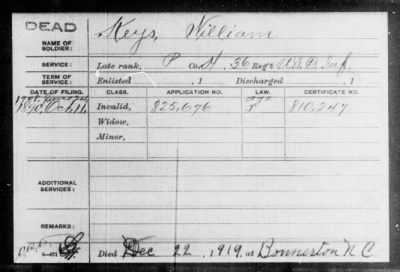 DEAD
NAME OF SOLDIER: Keys, William
SERVICE: Late rank, P Co. H, 36 Reg't U.S.C. Inf.
TERM OF SERVICE: Enlisted , 1 Discharged , 1
DATE OF FILING. CLASS. APPLICATION NO. LAW. CERTIFICATE NO.
1890, Invalid, 825,676 810,247
Widow,
Minor,
ADDITIONAL SERVICES:
REMARKS:
Died Dec 22, 1919, at Bonnerton N C